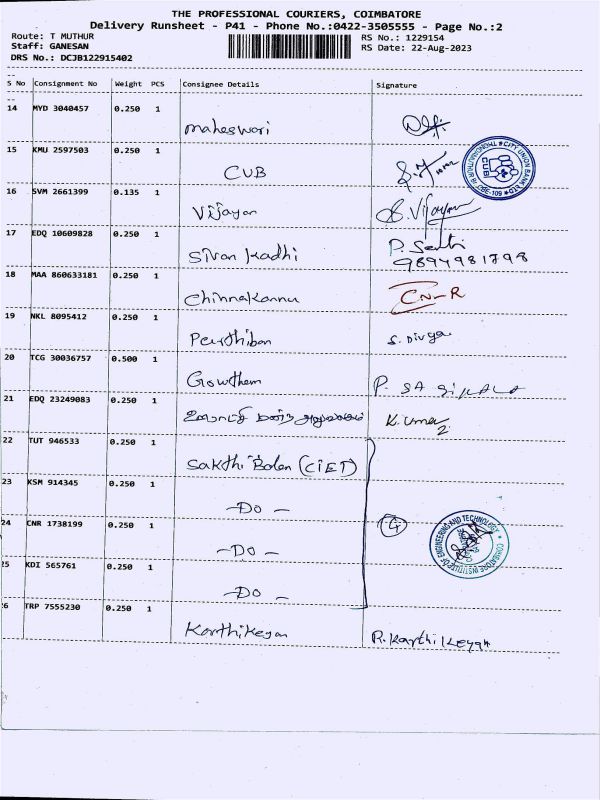 THE PROFESSIONAL COURIERS, COIMBATORE
Delivery Runsheet - P41 - Phone No.:0422-3505555 - Page No.:2
Route: T MUTHUR RS No.: 1229154
Staff: GANESAN RS Date: 22-Aug-2023
DRS No.: DCJB122915402
S No Consignment No Weight PCS Consignee Details Signature
14 MYD 3040457 0.250 1
Maheswari
15 KMU 2597503 0.250 1
CUB
CITY UNION BANK LTD
CUB
16 SVM 2661399 0.135 1
Vijayan S. Vijayan
17 EDQ 10609828 0.250 1
Sivan Kadhi P. Senthi
9894981798
18 MAA 860633181 0.250 1
Chinnakannu CN-R
19 NKL 8095412 0.250 1
Parthiban S. Divya
20 TCG 30036757 0.500 1
Gowthem P. SASIKALA
21 EDQ 23249083 0.250 1
ஊராட்சி மன்ற அலுவலகம் K. Umar
22 TUT 946533 0.250 1
Sakthi Balan (CIET)
23 KSM 914345 0.250 1
-DO-
24 CNR 1738199 0.250 1 4
-DO-
COIMBATORE INSTITUTE OF ENGINEERING AND TECHNOLOGY
25 KDI 565761 0.250 1
-DO-
26 TRP 7555230 0.250 1
Karthikeyan R. Karthikeyan